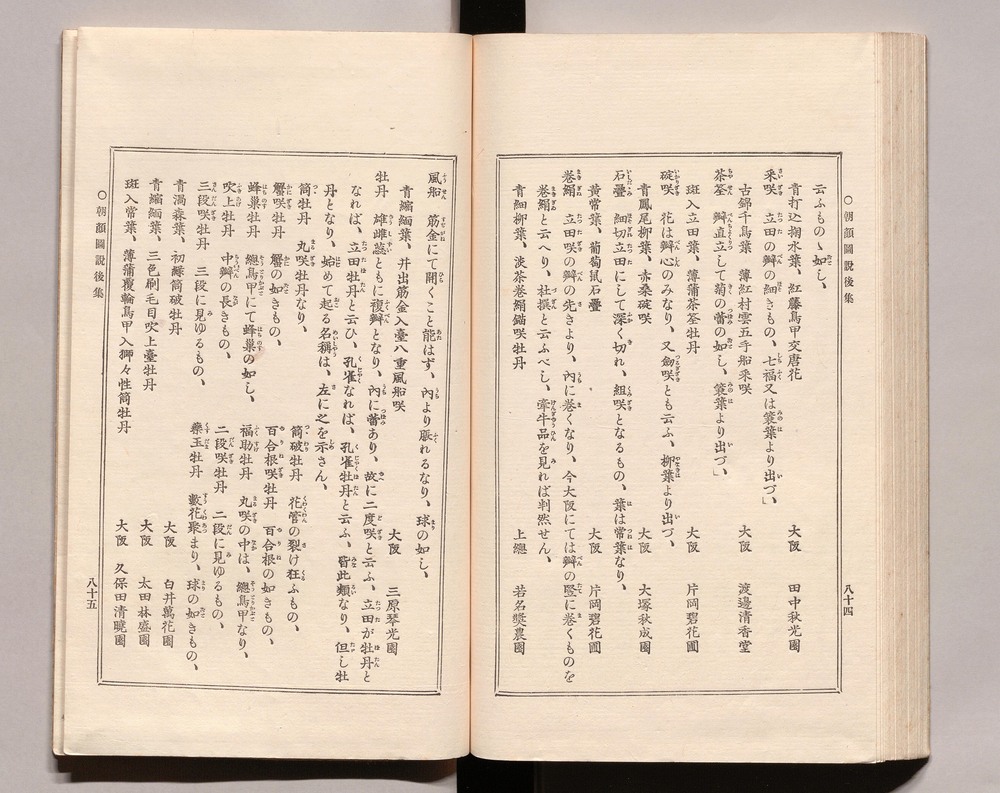 ○朝顔圖説後集
八十四
云ふものゝ如し、
青打込掬水葉、紅藤鳥甲交唐花　大阪　田中秋光園
采咲　立田の瓣の細きもの、七福又は簑葉より出づ、」
古錦千鳥葉　薄紅村雲五手船采咲　大阪　渡邊清香堂
茶筌　瓣直立して菊の蕾の如し、簑葉より出づ、」
斑入立田葉、薄蒲茶筌牡丹　大阪　片岡碧花園
碇咲　花は瓣心のみなり、又劔咲とも云ふ、柳葉より出づ、
青鳳尾柳葉、赤桑碇咲　大阪　大塚秋成園
石疊　細切立田にして深く切れ、組咲となるもの、葉は常葉なり、
黄常葉、葡萄鼠石疊　大阪　片岡碧花園
卷絹　立田咲の瓣の先きより、内に卷くなり、今大阪にては瓣の竪に卷くものを
卷絹と云へり、杜撰と云ふべし、牽牛品を見れば判然せん、
青細柳葉、淡茶卷絹錨咲牡丹　上總　若名奬農園
風船　筋金にて開くこと能はず、内より脹れるなり、球の如し、
青縮緬葉、并出筋金入臺八重風船咲　大阪　三原琴光園
牡丹　雄雌蕊ともに複瓣となり、内に蕾あり、故に二度咲と云ふ、立田が牡丹と
なれば、立田牡丹と云ひ、孔雀なれば、孔雀牡丹と云ふ、皆此類なり、但し牡
丹となり、始めて起る名稱は、左に之を示さん、
筒牡丹　丸咲牡丹なり、　筒破牡丹　花管の裂け狂ふもの、
蟹咲牡丹　蟹の如きもの、　百合根咲牡丹　百合根の如きもの、
蜂巢牡丹　總鳥甲にて蜂巢の如し、　福助牡丹　丸咲の中は、總鳥甲なり、
吹上牡丹　中瓣の長きもの、　二段咲牡丹　二段に見ゆるもの、
三段咲牡丹　三段に見ゆるもの、　藥玉牡丹　數花聚まり、球の如きもの、
青渦森葉、初緑筒破牡丹　大阪　白井萬花園
青縮緬葉、三色刷毛目吹上臺牡丹　大阪　太田林盛園
斑入常葉、薄蒲覆輪鳥甲入獅々性筒牡丹　大阪　久保田清曉園
○朝顔圖説後集
八十五